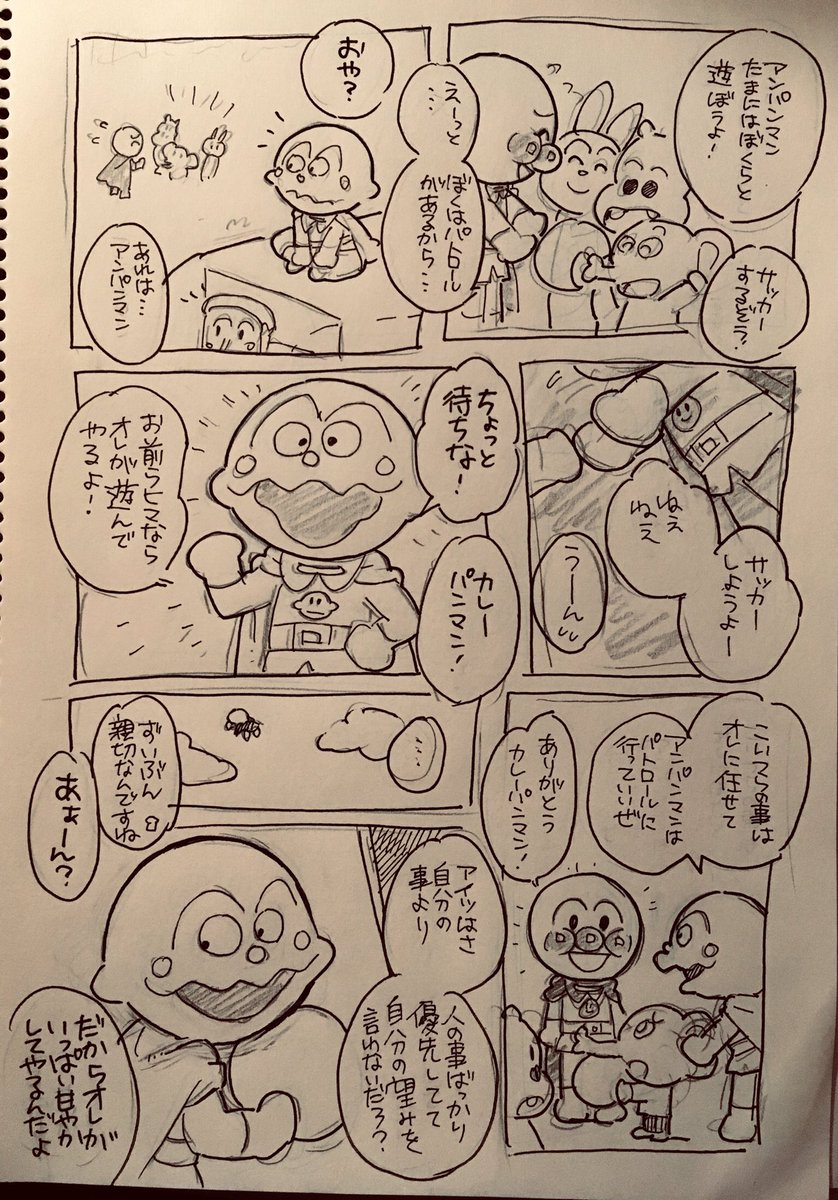 アンパンマン
たまにはぼくらと
遊ぼうよ!
サッカー
するぞう!
えーっと
……
ぼくはパトロール
があるから…
おや?
あれは…
アンパンマン
サッカー
しようよー
ねぇ
ねぇ
うーん
ちょっと
待ちな!
カレー
パンマン!
お前らヒマなら
オレが遊んで
やるよ!
こいつらの事は
オレに任せて
アンパンマンは
パトロールに
行っていいぜ
ありがとう
カレーパンマン!
……
ずいぶん
親切なんですね
あぁーん?
アイツはさ
自分の
事より
人の事ばっかり
優先してて
自分の望みを
言わないだろ?
だからオレが
いっぱい甘やか
してやるんだよ